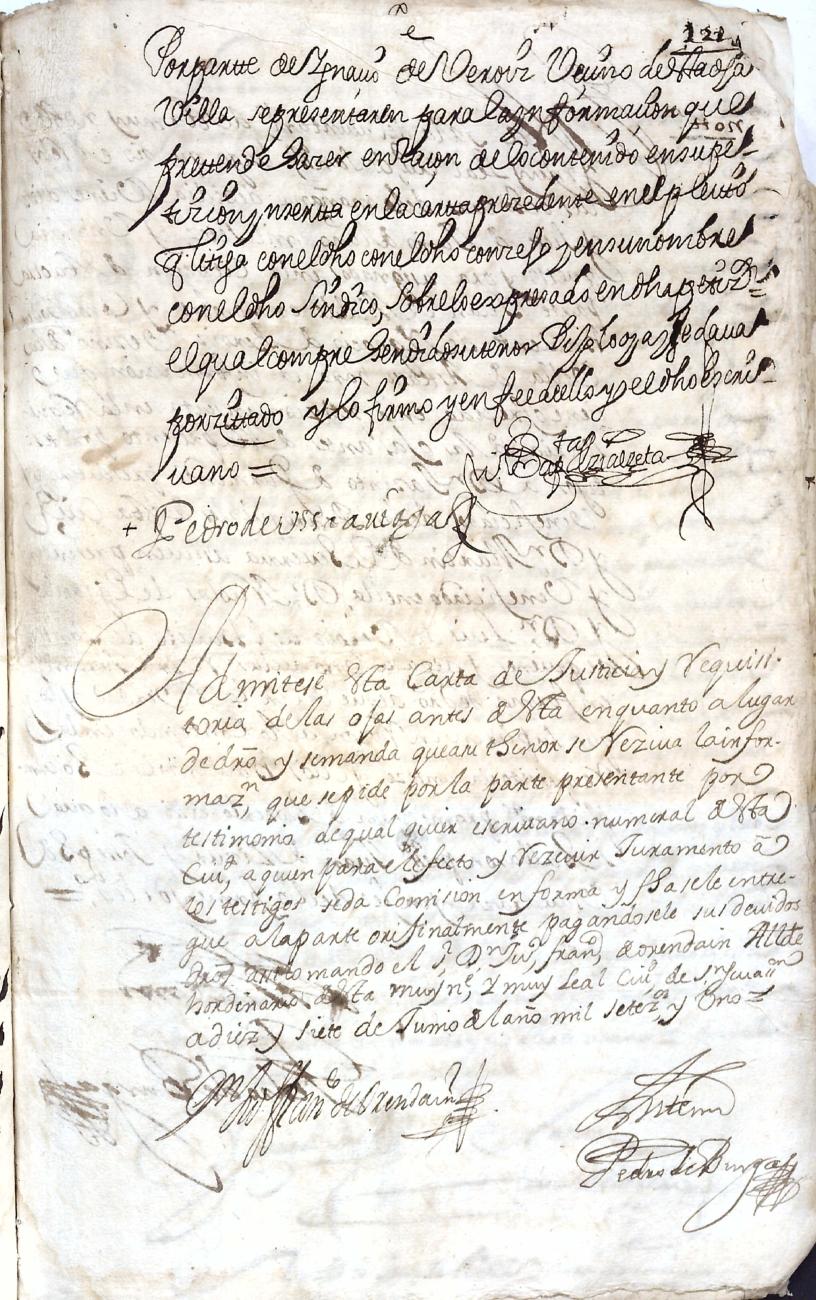 121
Por partte de Ygnaçio de Veroiz Veçino de esta dha
Villa se presentaren para la ynformaçion que
prettende hazer en raçon de lo contenido en su pe-
tiçion ynsertta en la cartta prezedente en el pleitto
q litiga con el dho con el dho conzejo y en su nombre
con el dho Sindico, sobre lo expresado en dha petiz.on =
el qual compre hendido su tenor Dijo lo oya y se dava
por zittado y lo firmo y en fee de ello yo el dho escri-
uano =
+ Pedro de
Admitese esta Carta de Justicia y requisi-
toria de las ojas antes de esta en quanto a lugar
de dro y se manda que a su thenor se reziua la infor-
maz.n que se pide por la parte presentante por
testimonio de qual quier escriuano numeral de esta
Ciu.d, a quien para el efecto y rezeuir Juramento a
los testigos se da Comision en forma y fha se le entre-
gue a la parte orijinalmente pagandosele sus deuidos
dros assi lo mando el s.r D.n Ju.o fran.co de orendain Allde
hordenario de esta muy n.e y muy Leal Ciu.d de
a diez y siete de Junio del año mil setez.os y Uno =
fran.co de Orendain
Ante mi
Pedro de Burga